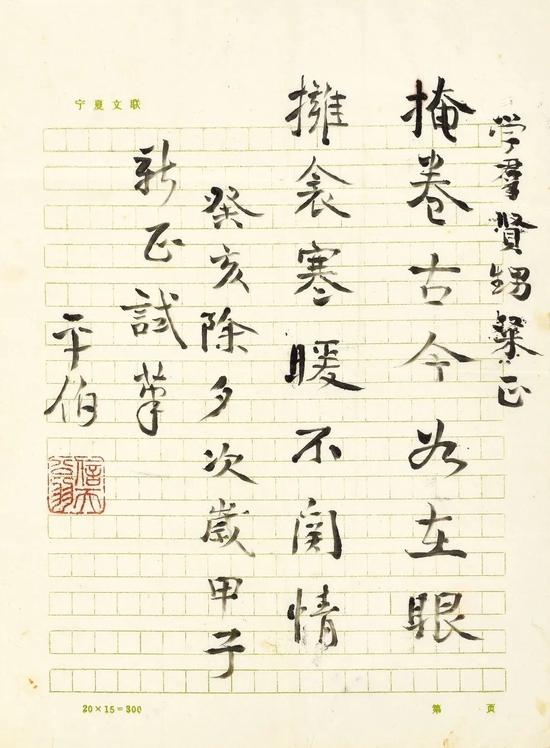 宁夏文联
学羣賢甥粲正
掩卷古今如在眼
擁衾寒暖不関情
癸亥除夕次歲甲子
新正試筆
平伯
信天翁
20×15=300
第 页